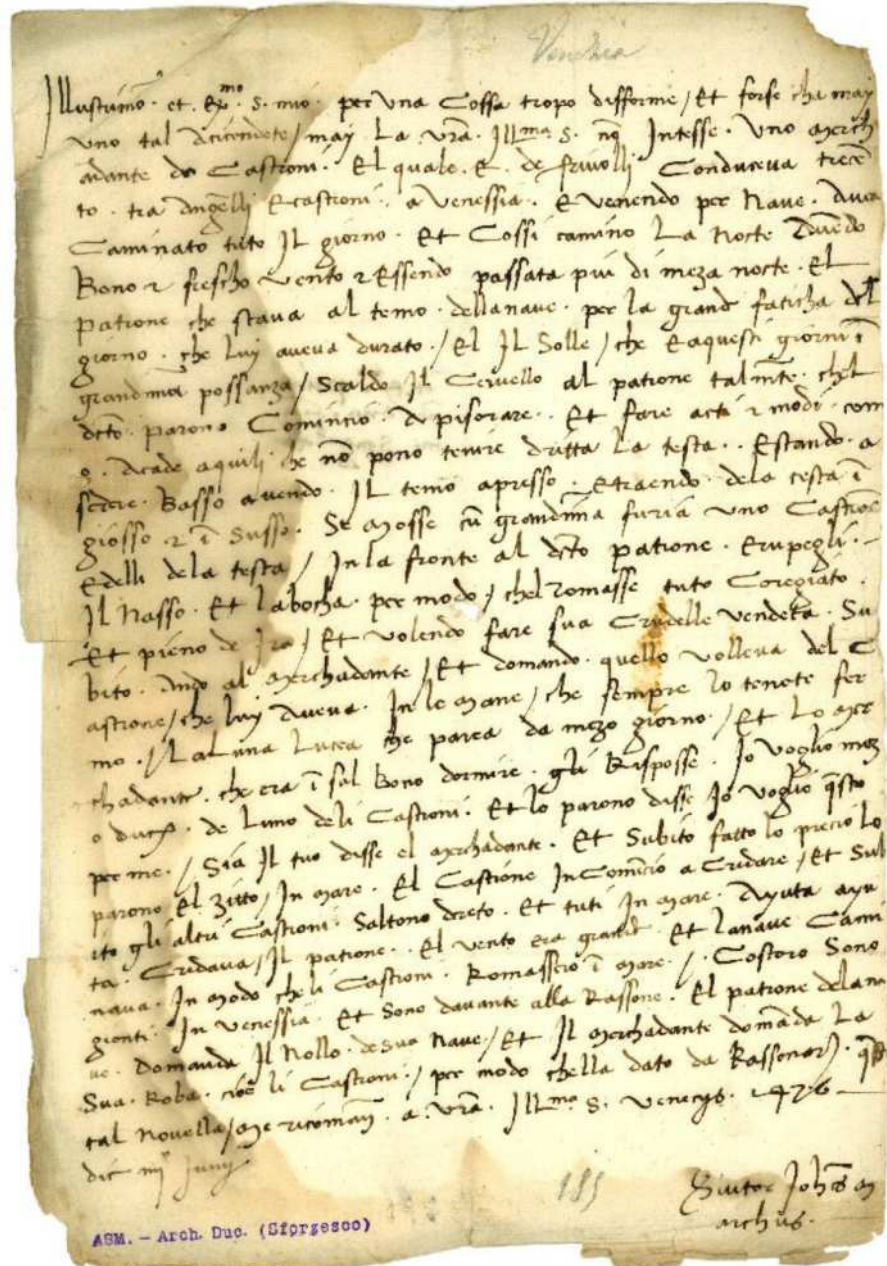 Venetia
Illustrimo. et. Exmo. S. mio. per una Cossa tropo difforme / Et forse che may
uno tal Acicendete / may La. vra. Illma. S. nō Intesse. Uno merch
adante de Castroni. El quale. E. de frivolli Conduceva trecē
to. tra Angēlli E castroni. a Venessia. E venendo per Nave. Avea
Caminato tuto Il giorno. Et Cossi camino La Nocte Avēdo
Bono z frescho vento z Essendo passata piu di meza nocte. El
patrone che stava al temo. dellanave. per la grande faticha del
giorno. che luy aveva durato. / El Il Solle / che E aquesti giorni ī
grandima possanza / Scaldo Il Cervello al patrone talmēte. chel
dcto. parono Comincio. A pisorare. Et fare acti z modi. com
o. Acade aquili che nō pono tenire dritta La testa. Estando. a
sedere. Basso avendo. Il temo apresso. Etraendo. dela testa ī
giosso z ī Susso. Se Mosse cū grandīma furia uno Castrōe
Edelli dela testa / In la fronte al dcto patrone. Erupegli. -
Il Nasso. Et la bocha. per modo / chel romasse tuto Coregiato.
Et pieno de Ira / Et volendo fare sua Crudelle vendeta. Su
bito. Ando al Merchadante / Et domando. quello volleva del C
astrone / che luy Aveva. In le Mane / che sempre lo tenete fer
mo. / La Luna Lucea che parea da mezo giorno. / Et Lo Mer
chadante. che era ī sul Bono dormire. gli Risposse. Io voglio mez
o duc. de Luno deli Castroni. Et lo parono disse Io voglio qsto
per me. / Sia Il tuo disse el Merchadante. Et Subito fatto lo precio Lo
parono El zitto / In Mare. El Castrone Incomīcio a Cridare / Et Sub
ito gli altri Castroni. Saltono dreto. Et tuti In Mare. Ayuta ayu
ta. Cridava / Il patrone. El vento era grande. Et lanave Cami
nava. In Modo che li Castroni. Romassero ī Mare. /. Costoro Sono
gionti. In Venessia. Et Sono davante alla Rassone. El patrone delana
ve. Domanda Il Nollo. de sua Nave / Et Il Merchadante domāda La
Sua. Roba. cioe li Castroni. / per modo chella dato da Rassonar.
tal Novella / Me ricomān. a. vra. Illma. S. Venecys. 1476
die iiij Junij
185
Zohēs M
archus.
ASM. - Arch. Duc. (Sforzesco)